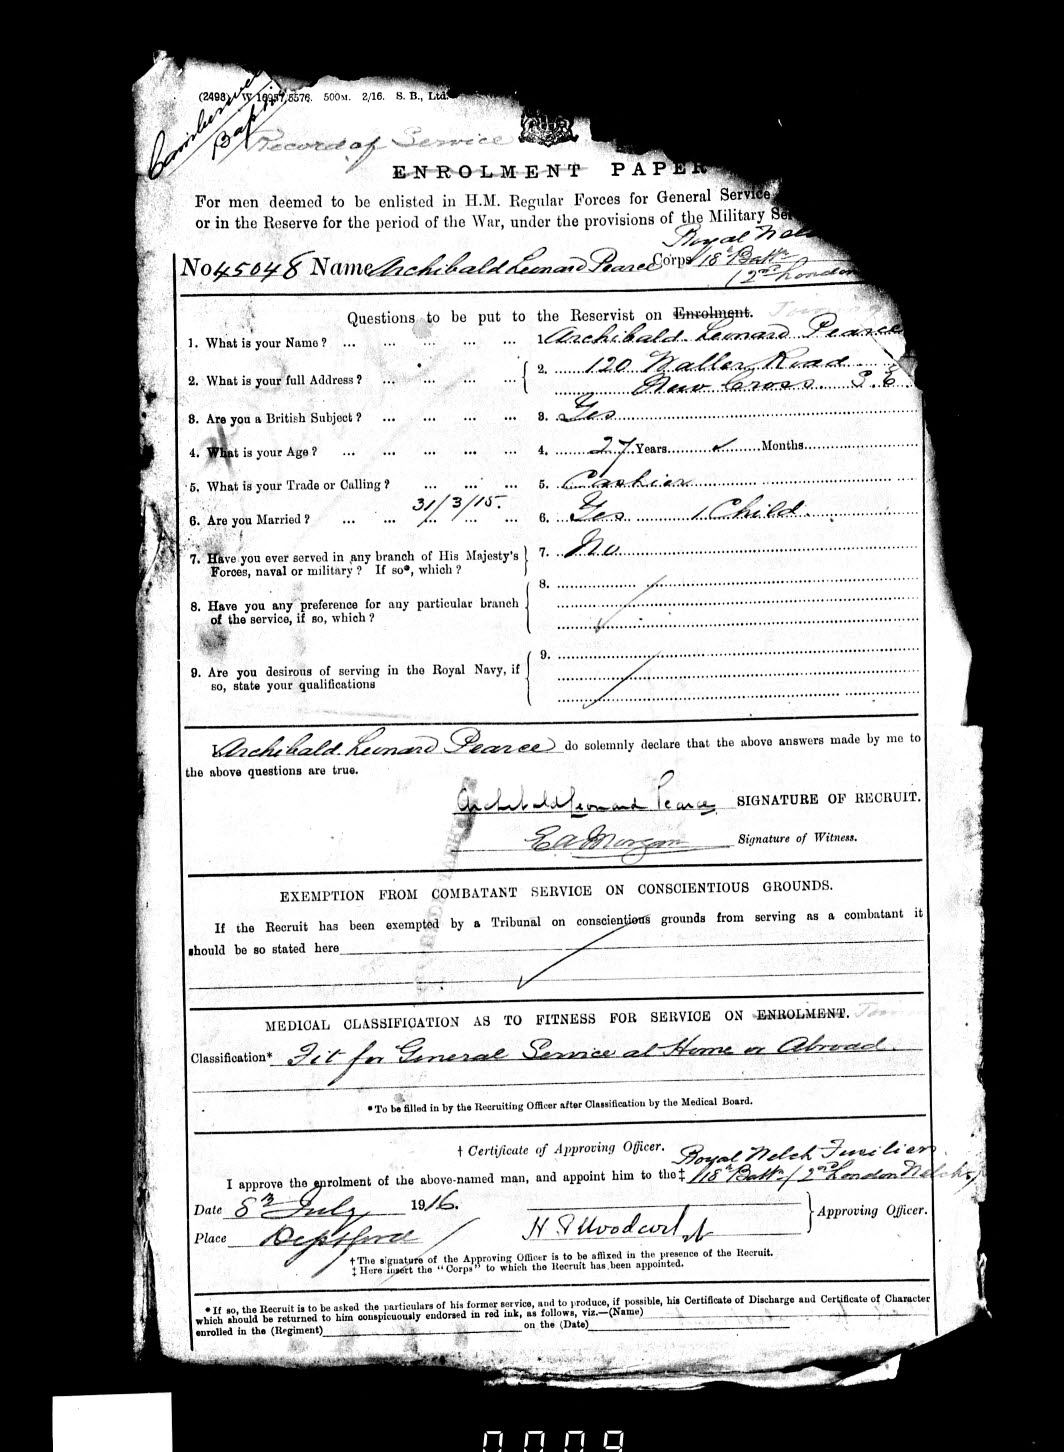 (2498) W 16957/5576. 500M. 2/16. S. B., Ltd.
Baptist
Record of Service
ENROLMENT PAPER
For men deemed to be enlisted in H.M. Regular Forces for General Service
or in the Reserve for the period of the War, under the provisions of the Military Ser
Royal Wel
No 45048 Name Archibald Leonard Pearce Corps 18th Battn
(2nd London
Questions to be put to the Reservist on Enrolment.
1. What is your Name? ... ... ... ... ... 1. Archibald Leonard Pearce
2. What is your full Address? ... ... ... ... 2. 120 Waller Road
New Cross S.E.
3. Are you a British Subject? ... ... ... ... 3. Yes
4. What is your Age? ... ... ... ... ... 4. 27 Years Months
5. What is your Trade or Calling? ... ... ... 5. Cashier
31/3/15.
6. Are you Married? ... ... ... ... ... 6. Yes 1 Child.
7. Have you ever served in any branch of His Majesty's 7. No
Forces, naval or military? If so*, which?
8. Have you any preference for any particular branch 8.
of the service, if so, which?
9. Are you desirous of serving in the Royal Navy, if 9.
so, state your qualifications
I Archibald Leonard Pearce do solemnly declare that the above answers made by me to
the above questions are true.
Archibald Leonard Pearce SIGNATURE OF RECRUIT.
E A Morgan Signature of Witness.
EXEMPTION FROM COMBATANT SERVICE ON CONSCIENTIOUS GROUNDS.
If the Recruit has been exempted by a Tribunal on conscientious grounds from serving as a combatant it
should be so stated here
MEDICAL CLASSIFICATION AS TO FITNESS FOR SERVICE ON ENROLMENT.
Classification* Fit for General Service at Home or Abroad.
*To be filled in by the Recruiting Officer after Classification by the Medical Board.
† Certificate of Approving Officer.
Royal Welch Fusiliers
I approve the enrolment of the above-named man, and appoint him to the‡ 18th Battn (2nd London Welch)
Date 8th July 1916.
Approving Officer.
Place Deptford
†The signature of the Approving Officer is to be affixed in the presence of the Recruit.
‡ Here insert the "Corps" to which the Recruit has been appointed.
*If so, the Recruit is to be asked the particulars of his former service, and to produce, if possible, his Certificate of Discharge and Certificate of Character
which should be returned to him conspicuously endorsed in red ink, as follows, viz.—(Name)
enrolled in the (Regiment) on the (Date)
0009